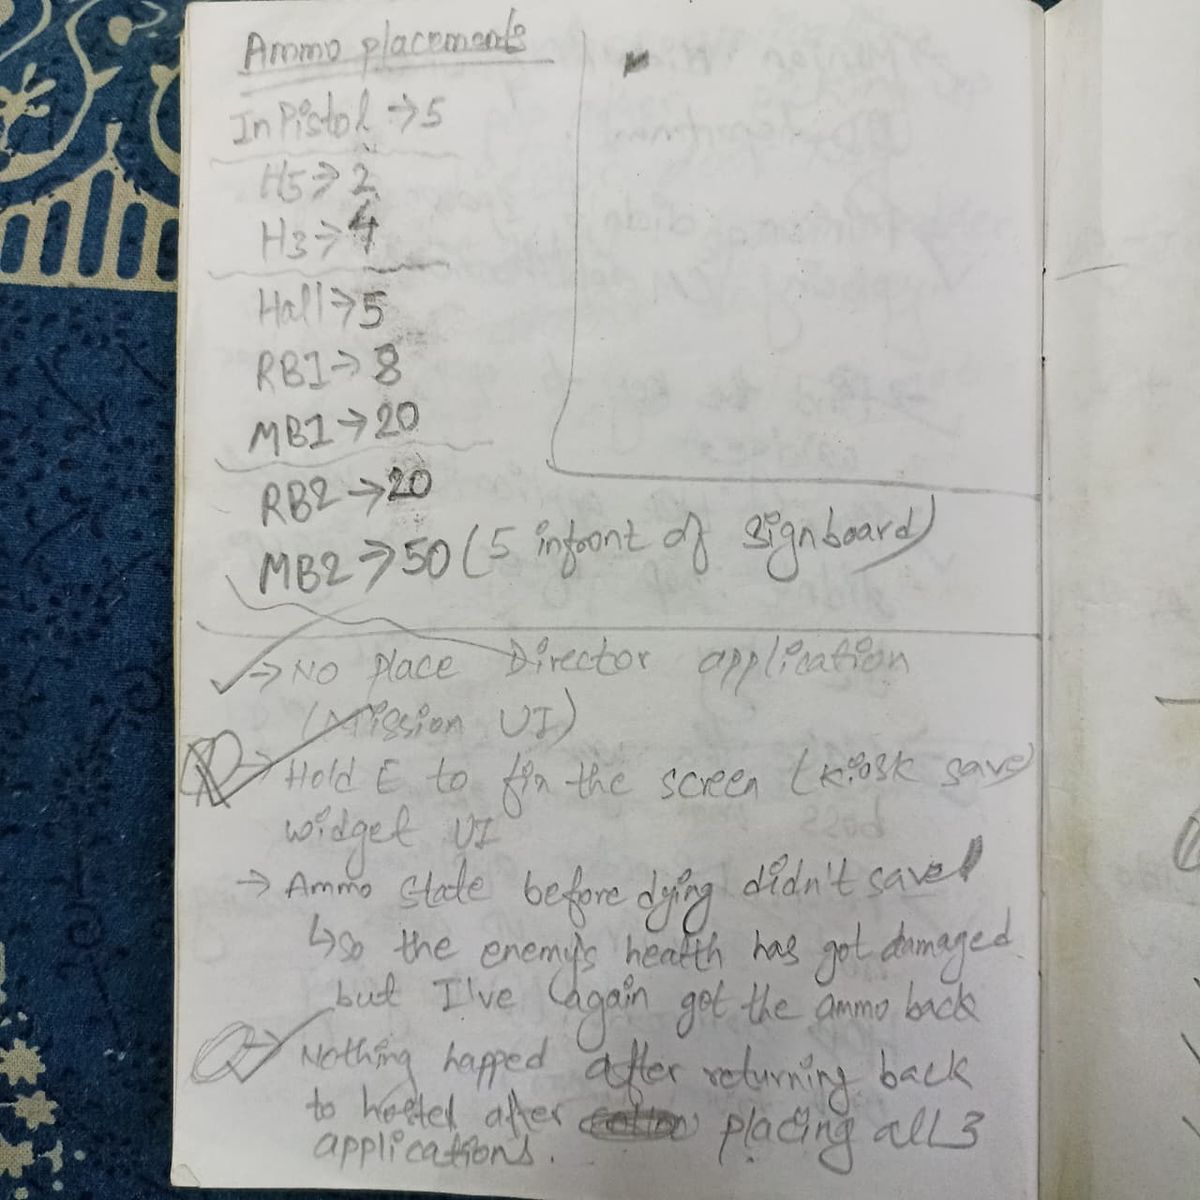 Ammo placements
In Pistol → 5
H5 → 2
H3 → 4
Hall → 5
RB1 → 8
MB1 → 20
RB2 → 20
MB2 → 50 (5 infront of signboard)
→ No place Director application
(Mission UI)
→ Hold E to fix the screen (kiosk save
widget UI
→ Ammo state before dying didn't save
↳ so the enemy's health has got damaged
but I've again got the ammo back
→ Nothing happed after returning back
to hostel after placing all 3
applications.